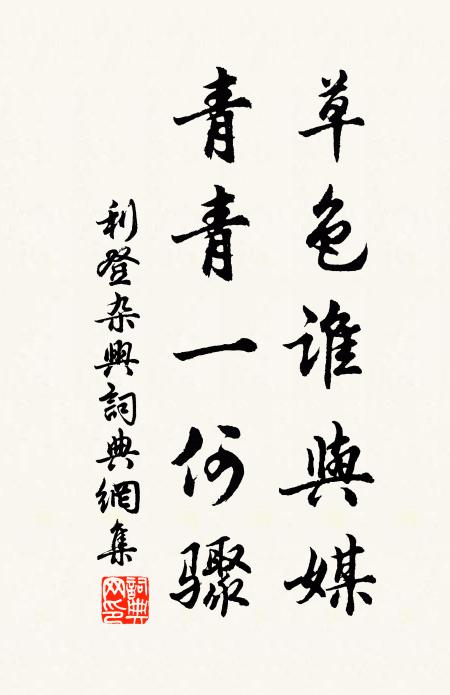 草色誰與媒
青青一何驟
利登杂興詞典網集
詞典网印